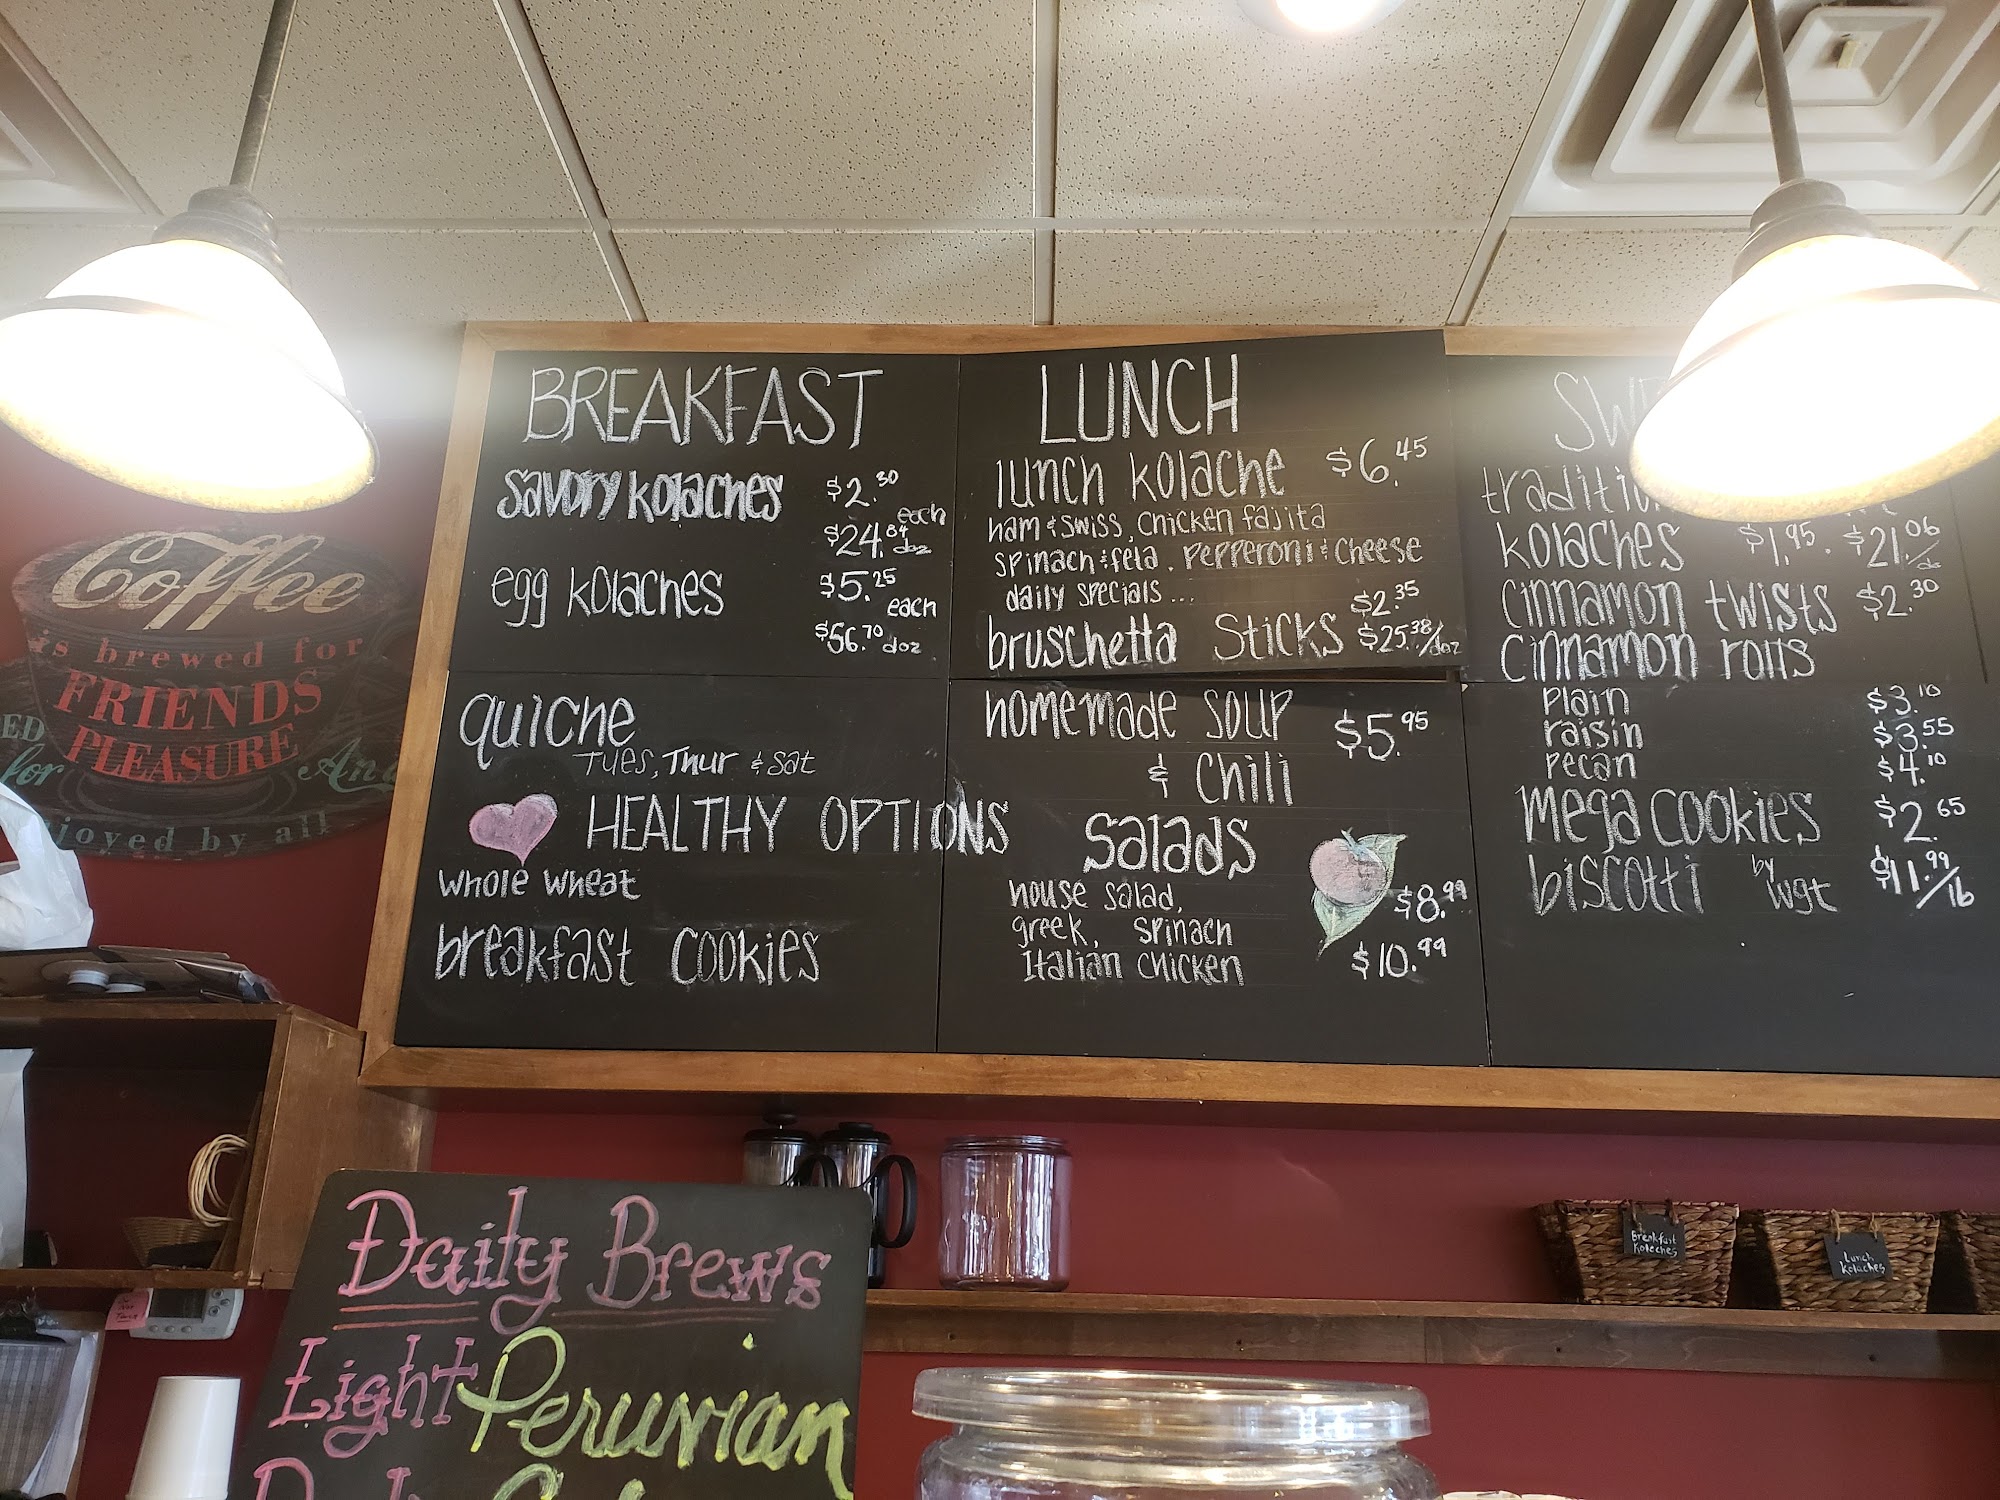 BREAKFAST
savory kolaches $2.30 each
$24.84 doz
egg kolaches $5.25 each
$56.70 doz
quiche
Tues, Thur & Sat
HEALTHY OPTIONS
whole wheat
breakfast cookies
LUNCH
lunch kolache $6.45
ham & swiss, chicken fajita
spinach & feta. pepperoni & cheese
daily specials...
bruschetta sticks $2.35
$25.38/doz
homemade soup
& chili $5.95
salads
house salad, $8.99
greek, spinach
Italian chicken $10.99
kolaches $1.95. $21.06
cinnamon twists $2.30
cinnamon rolls
plain $3.10
raisin $3.55
pecan $4.10
mega cookies $2.65
biscotti by wgt $11.99/lb
Coffee
is brewed for
FRIENDS
PLEASURE
for
by all
Daily Brews
Light Peruvian
Breakfast
Kolaches
Lunch
Kolaches